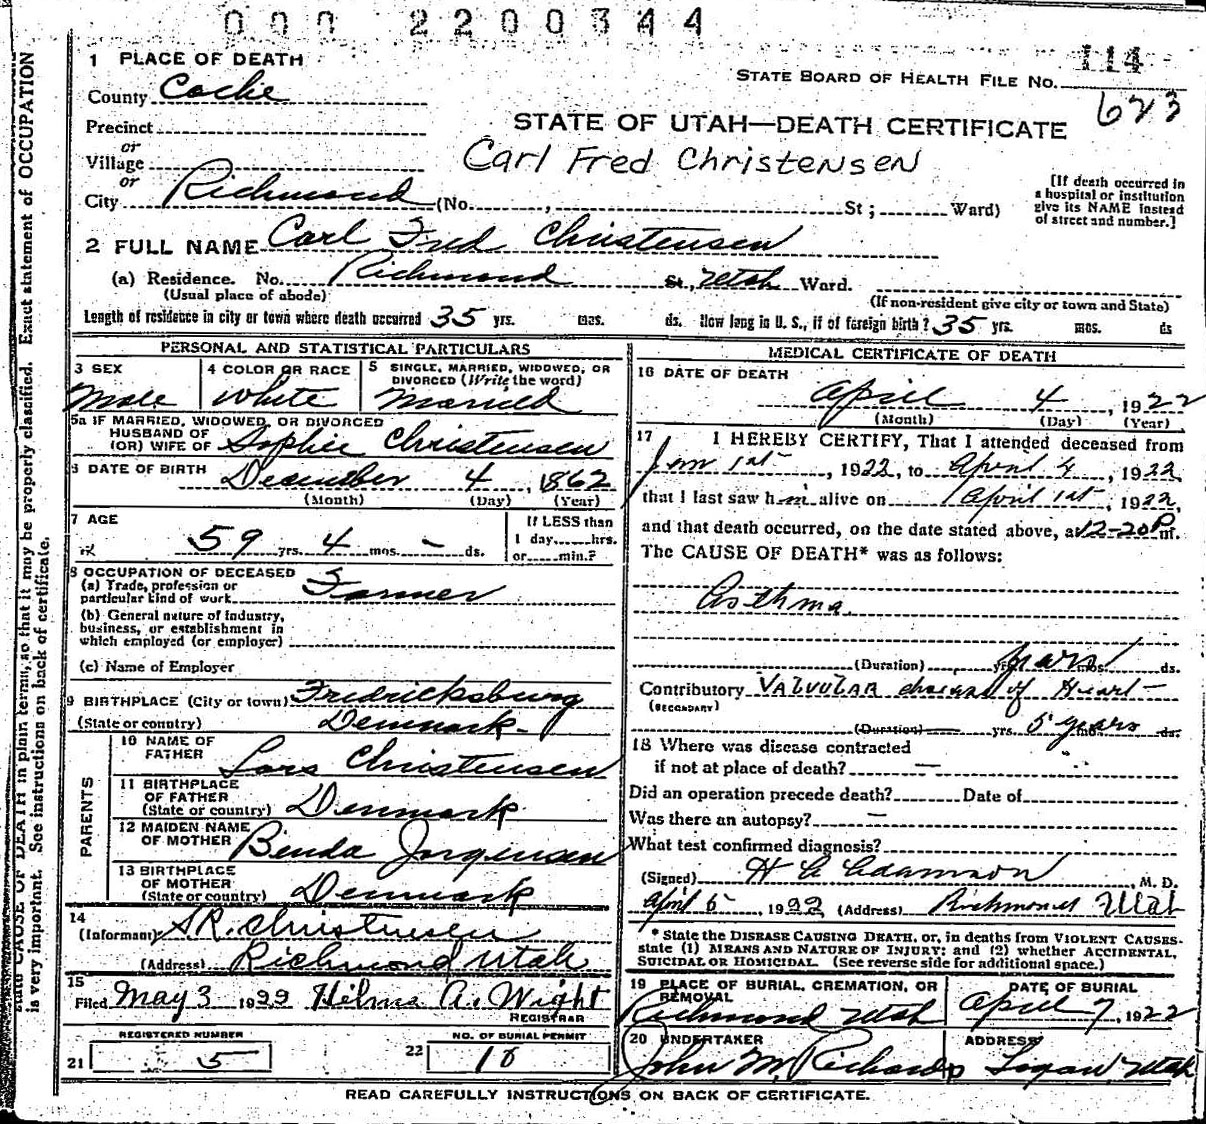 000 2200344
1 PLACE OF DEATH
114
STATE BOARD OF HEALTH FILE NO.
County Cache
623
Precinct
STATE OF UTAH—DEATH CERTIFICATE
or
Village
Carl Fred Christensen
or
City Richmond (No. , St; Ward)
[If death occurred in
a hospital or institution
give its NAME instead
of street and number.]
2 FULL NAME Carl Fred Christensen
(a) Residence. No. Richmond St, Utah Ward.
(Usual place of abode)
(If non-resident give city or town and State)
Length of residence in city or town where death occurred 35 yrs. mos. ds. How long in U. S., if of foreign birth? 35 yrs. mos. ds
PERSONAL AND STATISTICAL PARTICULARS
3 SEX
Male
4 COLOR OR RACE
White
5 SINGLE, MARRIED, WIDOWED, OR
DIVORCED (Write the word)
Married
5a IF MARRIED, WIDOWED, OR DIVORCED
HUSBAND OF
(OR) WIFE OF Sophie Christensen
6 DATE OF BIRTH
December 4, 1862
(Month) (Day) (Year)
7 AGE
59 yrs. 4 mos. - ds.
If LESS than
1 day hrs.
or min.?
8 OCCUPATION OF DECEASED
(a) Trade, profession or
particular kind of work Farmer
(b) General nature of Industry,
business, or establishment in
which employed (or employer)
(c) Name of Employer
9 BIRTHPLACE (City or town) Fredricksburg
(State or country) Denmark-
PARENTS
10 NAME OF
FATHER Lars Christensen
11 BIRTHPLACE
OF FATHER
(State or country) Denmark
12 MAIDEN NAME
OF MOTHER Benda Jorgensen
13 BIRTHPLACE
OF MOTHER
(State or country) Denmark
14
(Informant) S.R. Christensen
(Address) Richmond Utah
15
Filed May 3 1922 Hilma A. Wight
REGISTRAR
REGISTERED NUMBER
21 5
NO. OF BURIAL PERMIT
22 10
MEDICAL CERTIFICATE OF DEATH
16 DATE OF DEATH
April 4, 1922
(Month) (Day) (Year)
17 I HEREBY CERTIFY, That I attended deceased from
Jan 1st, 1922, to April 4, 1922
that I last saw him alive on April 1st, 1922,
and that death occurred, on the date stated above, at 12-20 P m.
The CAUSE OF DEATH* was as follows:
Asthma.
(Duration) yrs. years mos. ds.
Contributory Valvular disease of Heart-
(SECONDARY)
(Duration) yrs. 5 years mos. ds.
18 Where was disease contracted
if not at place of death? -
Did an operation precede death? Date of
Was there an autopsy? -
What test confirmed diagnosis?
(Signed) Adamson, M. D.
April 5, 1922 (Address) Richmond Utah
* State the DISEASE CAUSING DEATH, or, in deaths from VIOLENT CAUSES-
state (1) MEANS AND NATURE OF INJURY; and (2) whether ACCIDENTAL,
SUICIDAL OR HOMICIDAL. (See reverse side for additional space.)
19 PLACE OF BURIAL, CREMATION, OR
REMOVAL
Richmond Utah
DATE OF BURIAL
April 7, 1922
20 UNDERTAKER
John M. Richards
ADDRESS
Logan, Utah
READ CAREFULLY INSTRUCTIONS ON BACK OF CERTIFICATE.
state CAUSE OF DEATH in plain terms, so that it may be properly classified. Exact statement of OCCUPATION
is very important. See instructions on back of certificate.